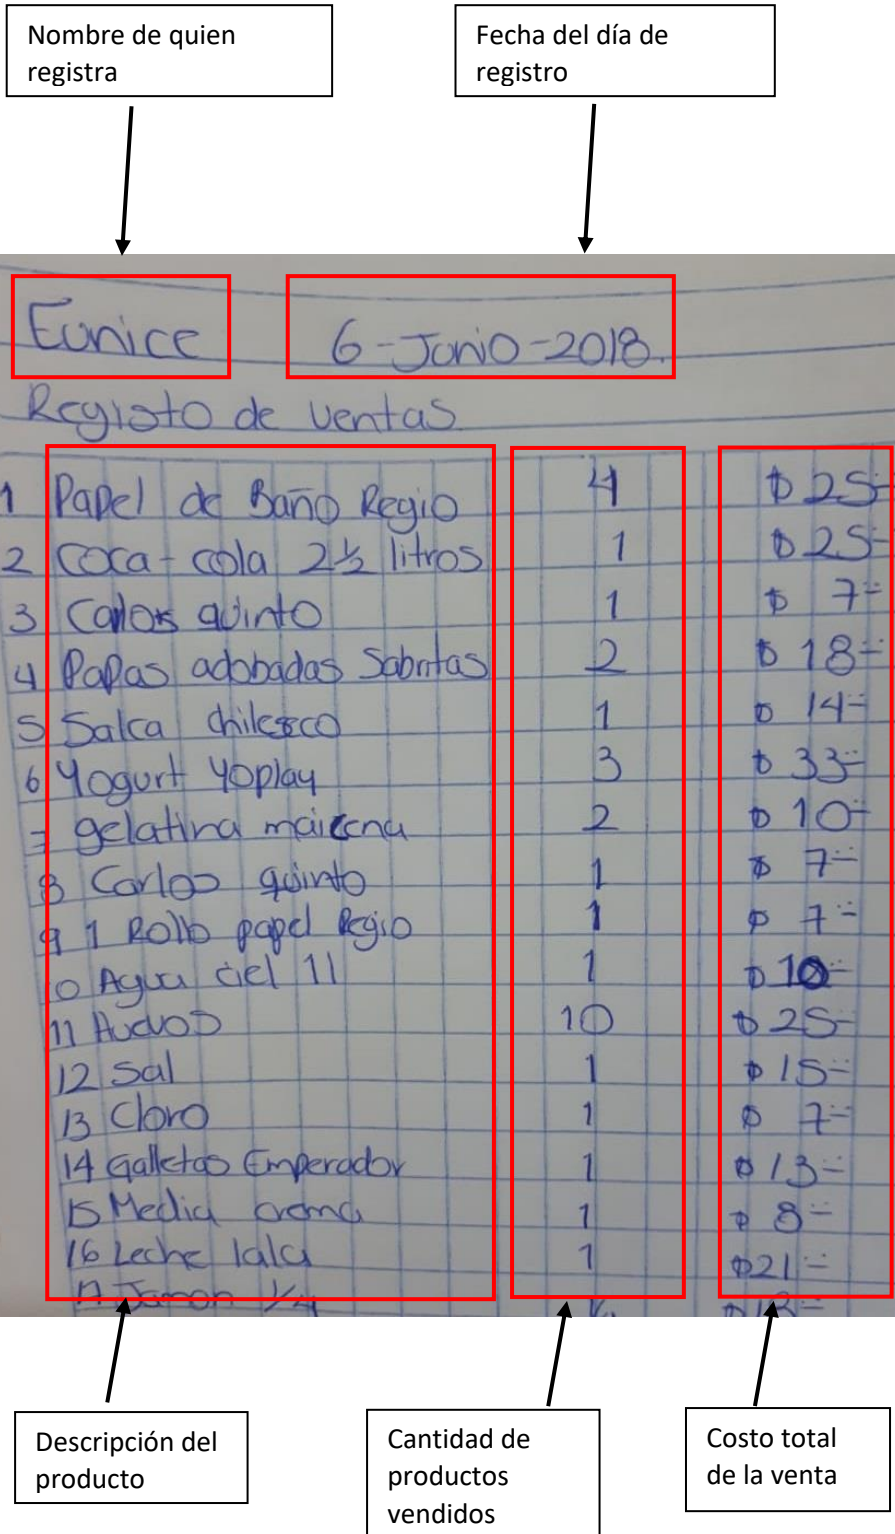 Nombre de quien
registra
Fecha del día de
registro
Eunice 6-Junio-2018.
Registo de ventas
1 Papel de Baño Regio 4 $25=
2 Coca-cola 2½ litros 1 $25=
3 Carlos quinto 1 $ 7=
4 Papas adobadas Sabritas 2 $18=
5 Salca 1 $14=
6 Yogurt Yoplay 3 $33=
7 gelatina maicena 2 $10=
8 Carlos quinto 1 $ 7=
9 1 Rollo papel Regio 1 $ 7=
10 Agua ciel 1l 1 $10=
11 Huevos 10 $25=
12 Sal 1 $15=
13 Cloro 1 $ 7=
14 Galletas Emperador 1 $13=
15 Media crema 1 $ 8=
16 Leche lala 1 $21=
17 Jamon 1/4
Descripción del
producto
Cantidad de
productos
vendidos
Costo total
de la venta